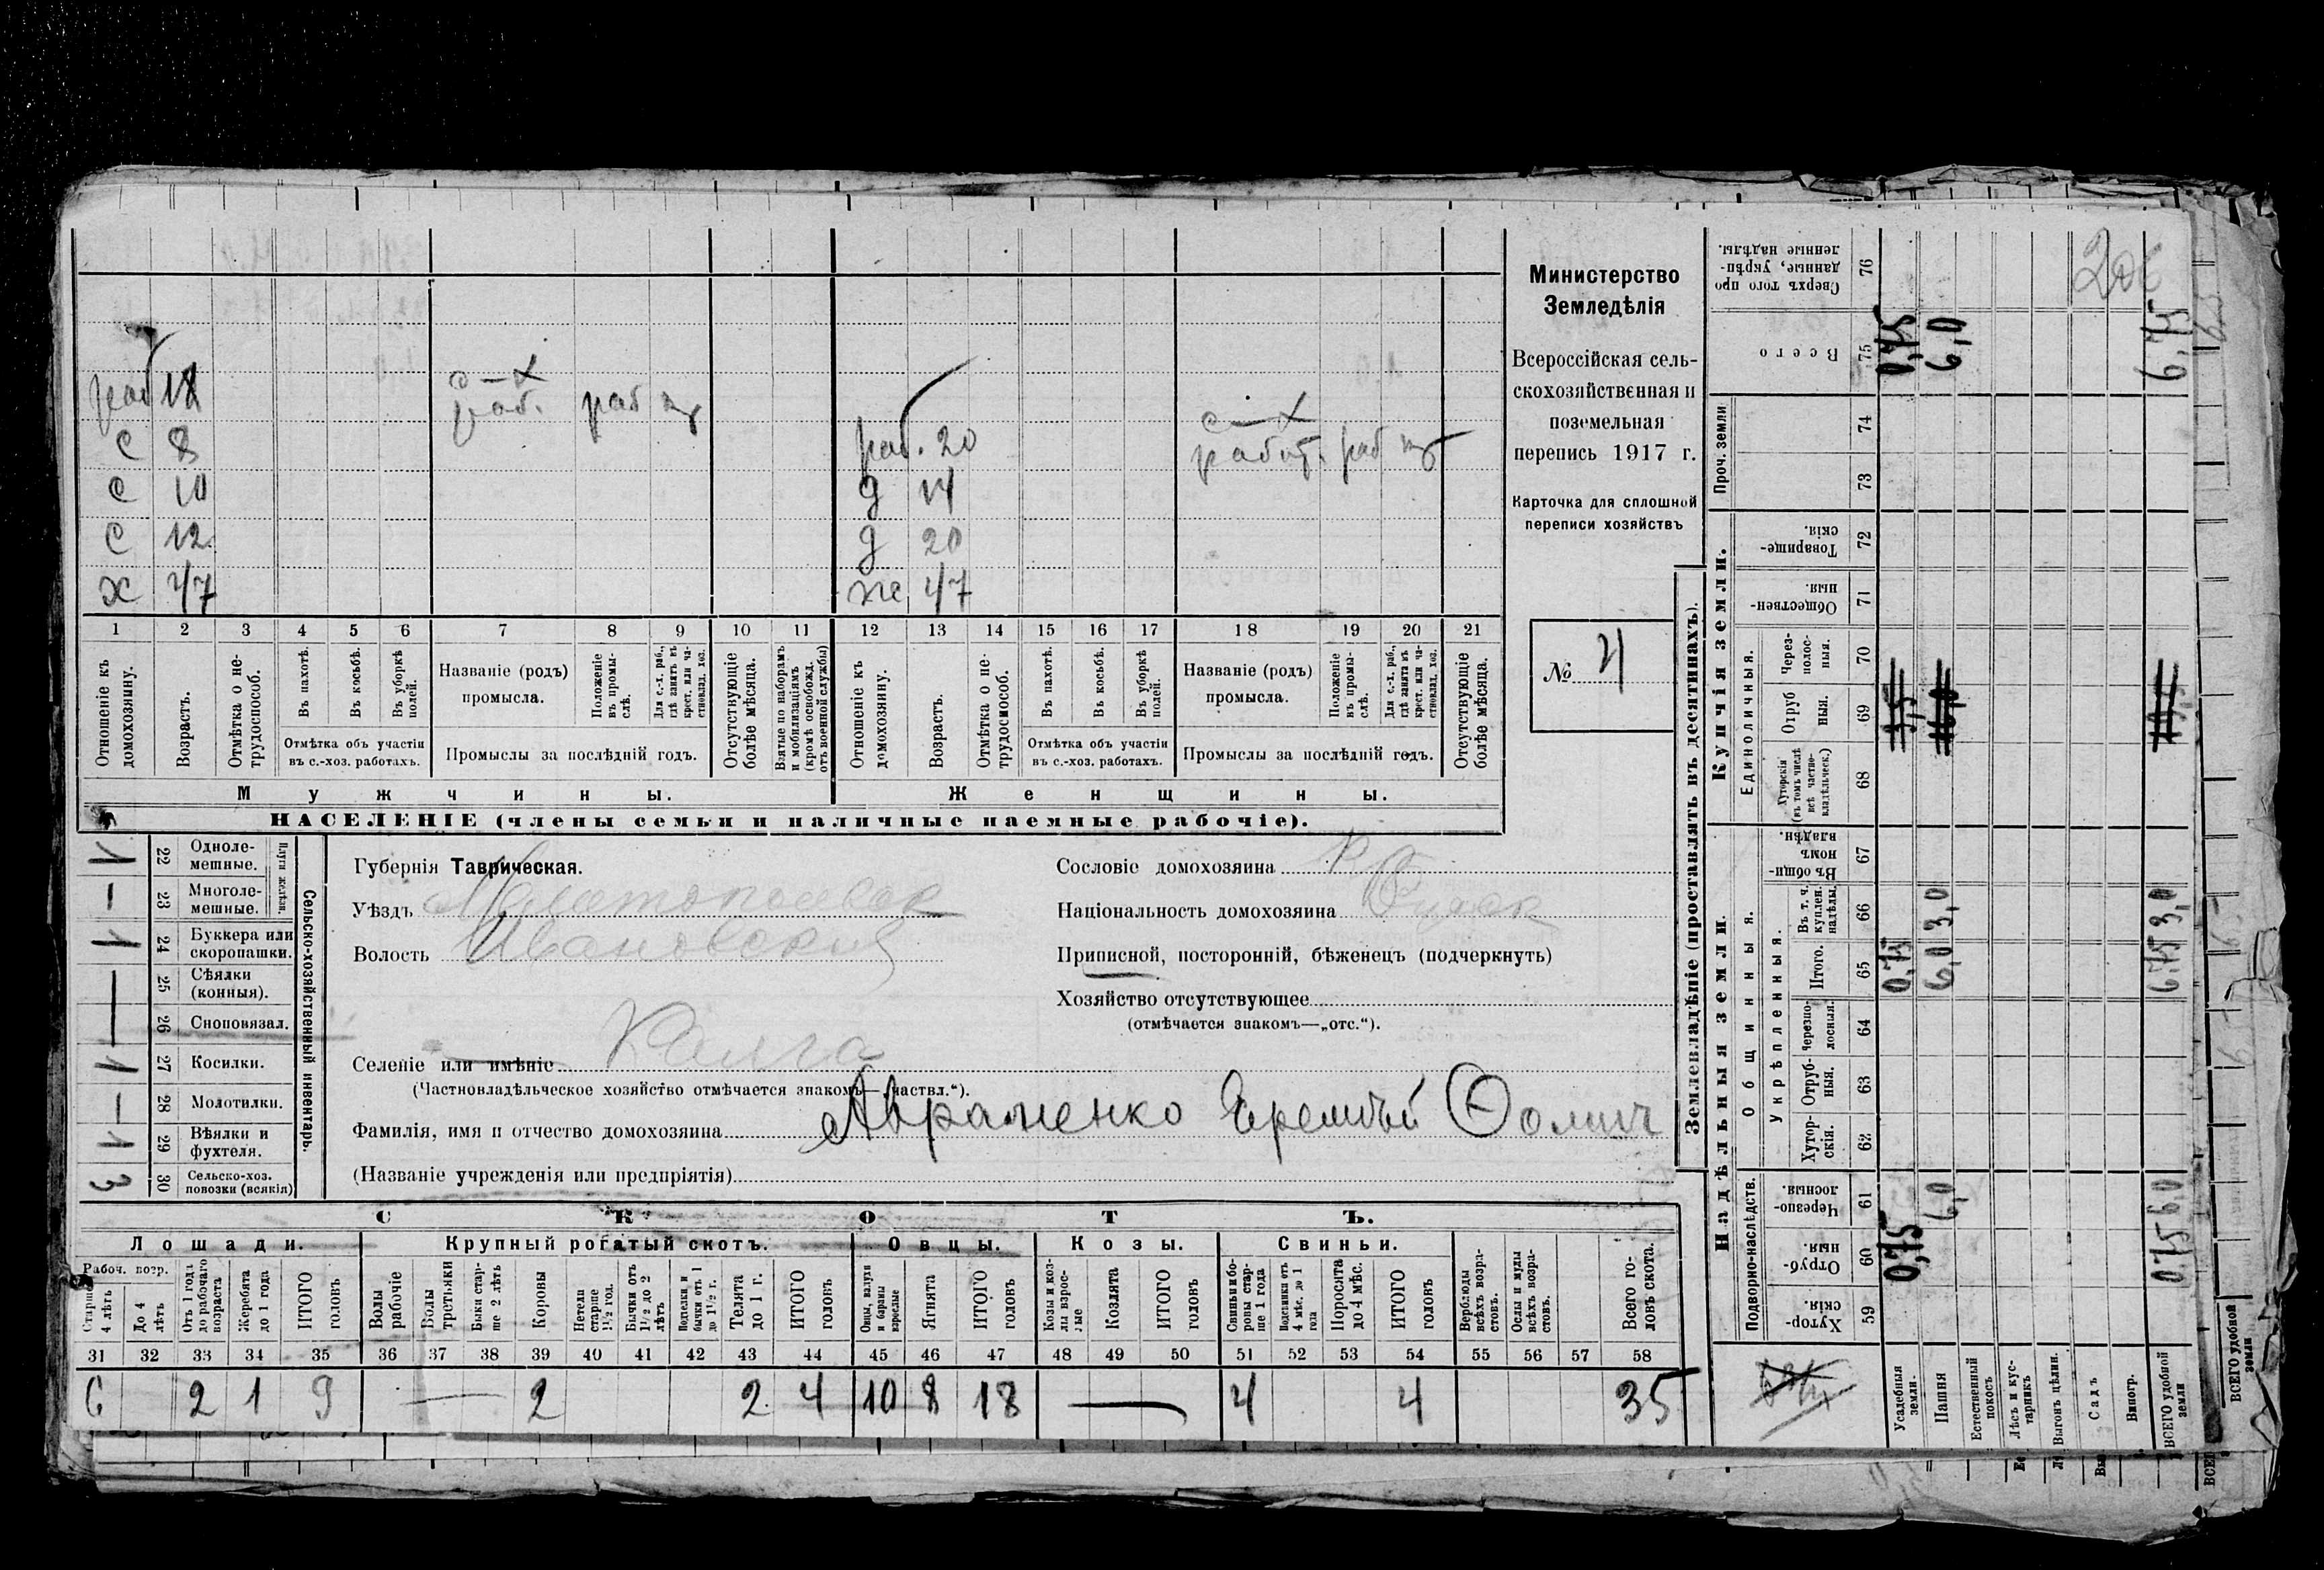 Министерство
Земледѣлія
Всероссійская сель-
скохозяйственная и
поземельная
перепись 1917 г.
Карточка для сплошной
переписи хозяйствъ
№ 4
раб 18 с-х раб. раб
с 8 раб. 20 с-х работ. раб
с 10 д 14
с 12 д 20
х 47 же 47
1 2 3 4 5 6 7 8 9 10 11 12 13 14 15 16 17 18 19 20 21
Отношеніе къ домохозяину.
Возрастъ.
Отмѣтка о не-трудоспособ.
Въ пахотѣ.
Въ косьбѣ.
Въ уборкѣ полей.
Отмѣтка объ участіи въ с.-хоз. работахъ.
Названіе (родъ) промысла.
Положеніе въ промы-слѣ.
Для с.-х. раб., гдѣ занятъ въ крест. или ча-стновлад. хоз.
Промыслы за послѣдній годъ.
Отсутствующіе болѣе мѣсяца.
Взятые по наборамъ и мобилизаціямъ (кромѣ освобожд. отъ военной службы)
Отношеніе къ домохозяину.
Возрастъ.
Отмѣтка о не-трудоспособ.
Въ пахотѣ.
Въ косьбѣ.
Въ уборкѣ полей.
Отмѣтка объ участіи въ с.-хоз. работахъ.
Названіе (родъ) промысла.
Положеніе въ промы-слѣ.
Для с.-х. раб., гдѣ занята въ крест. или ча-стновлад. хоз.
Промыслы за послѣдній годъ.
Отсутствующіе болѣе мѣсяца.
Мужчины. Женщины.
НАСЕЛЕНІЕ (члены семьи и наличные наемные рабочіе).
Сельско-хозяйственный инвентарь.
Плуги желѣзн.
22 Одноле-мешные. 1
23 Многоле-мешные. —
24 Буккера или скоропашки. 1
25 Сѣялки (конныя). —
26 Сноповязал. —
27 Косилки. 1
28 Молотилки. —
29 Вѣялки и фухтеля. 1
30 Сельско-хоз. повозки (всякія) 3
Губернія Таврическая.
Уѣздъ Мелитопольск
Волость Ивановская
Селеніе или имѣніе
(Частновладѣльческое хозяйство отмѣчается знакомъ—„частвл.“).
Фамилія, имя и отчество домохозяина Авраменко Еремѣй Ѳомич
(Названіе учрежденія или предпріятія)
Сословіе домохозяина
Національность домохозяина
Приписной, посторонній, бѣженецъ (подчеркнуть)
Хозяйство отсутствующее
(отмѣчается знакомъ—„отс.“).
СКОТЪ.
Лошади. Крупный рогатый скотъ. Овцы. Козы. Свиньи.
Рабоч. возр.
Старше 4 лѣтъ
До 4 лѣтъ
Отъ 1 года до рабочаго возраста
Жеребята до 1 года
ИТОГО головъ
Волы рабочіе
Волы третьяки
Быки стар-ше 2 лѣтъ
Коровы
Нетели старше 1½ год.
Бычки отъ 1½ до 2 лѣтъ
Подтелки и бычки отъ 1 до 1½ г.
Телята до 1 г.
ИТОГО головъ
Овцы, валухи и бараны взрослые
Ягнята
ИТОГО головъ
Козы и коз-лы взрос-лые
Козлята
ИТОГО головъ
Свиньи и бо-ровы стар-ше 1 года
Подсвинки отъ 4 мѣс. до 1 года
Поросята до 4 мѣс.
ИТОГО головъ
Верблюды всѣхъ возра-стовъ.
Ослы и мулы всѣхъ возра-стовъ.
Всего го-ловъ скота.
31 32 33 34 35 36 37 38 39 40 41 42 43 44 45 46 47 48 49 50 51 52 53 54 55 56 57 58
6 2 1 9 — 2 2 4 10 8 18 — 4 4 35
Землевладѣніе (проставлять въ десятинахъ).
Купчія земли.
Надѣльныя земли.
Сверхъ того про данные, укрѣп-ленные надѣлы. 76
Всего 75 0,75 6,0 6,75
Проч. земли 74 73
Товарище-скія. 72
Обществен-ныя. 71
Единоличныя.
Через-полос-ныя. 70
Отруб ныя. 69
Хуторскія (въ томъ числѣ всѣ частно-владѣльческ.) 68
Общинныя.
Въ общи-номъ владѣн. 67
Укрѣпленныя.
Въ т. ч. куплен. надѣлы. 66 3,0 3,0
Итого. 65 0,75 6,0 6,75
Черезпо-лосныя. 64
Отруб-ныя. 63
Хутор-скія. 62
Подворно-наслѣдств.
Черезпо-лосныя. 61 6,0 6,0
Отруб-ныя. 60 0,75 0,75
Хутор-скія. 59
Усадебныя земли.
Пашня
Естественный покосъ
Лѣсъ и кус-тарникъ
Выгонъ цѣлин.
Садъ
Виногр.
ВСЕГО удобной земли
ВСЕГО удобной земли